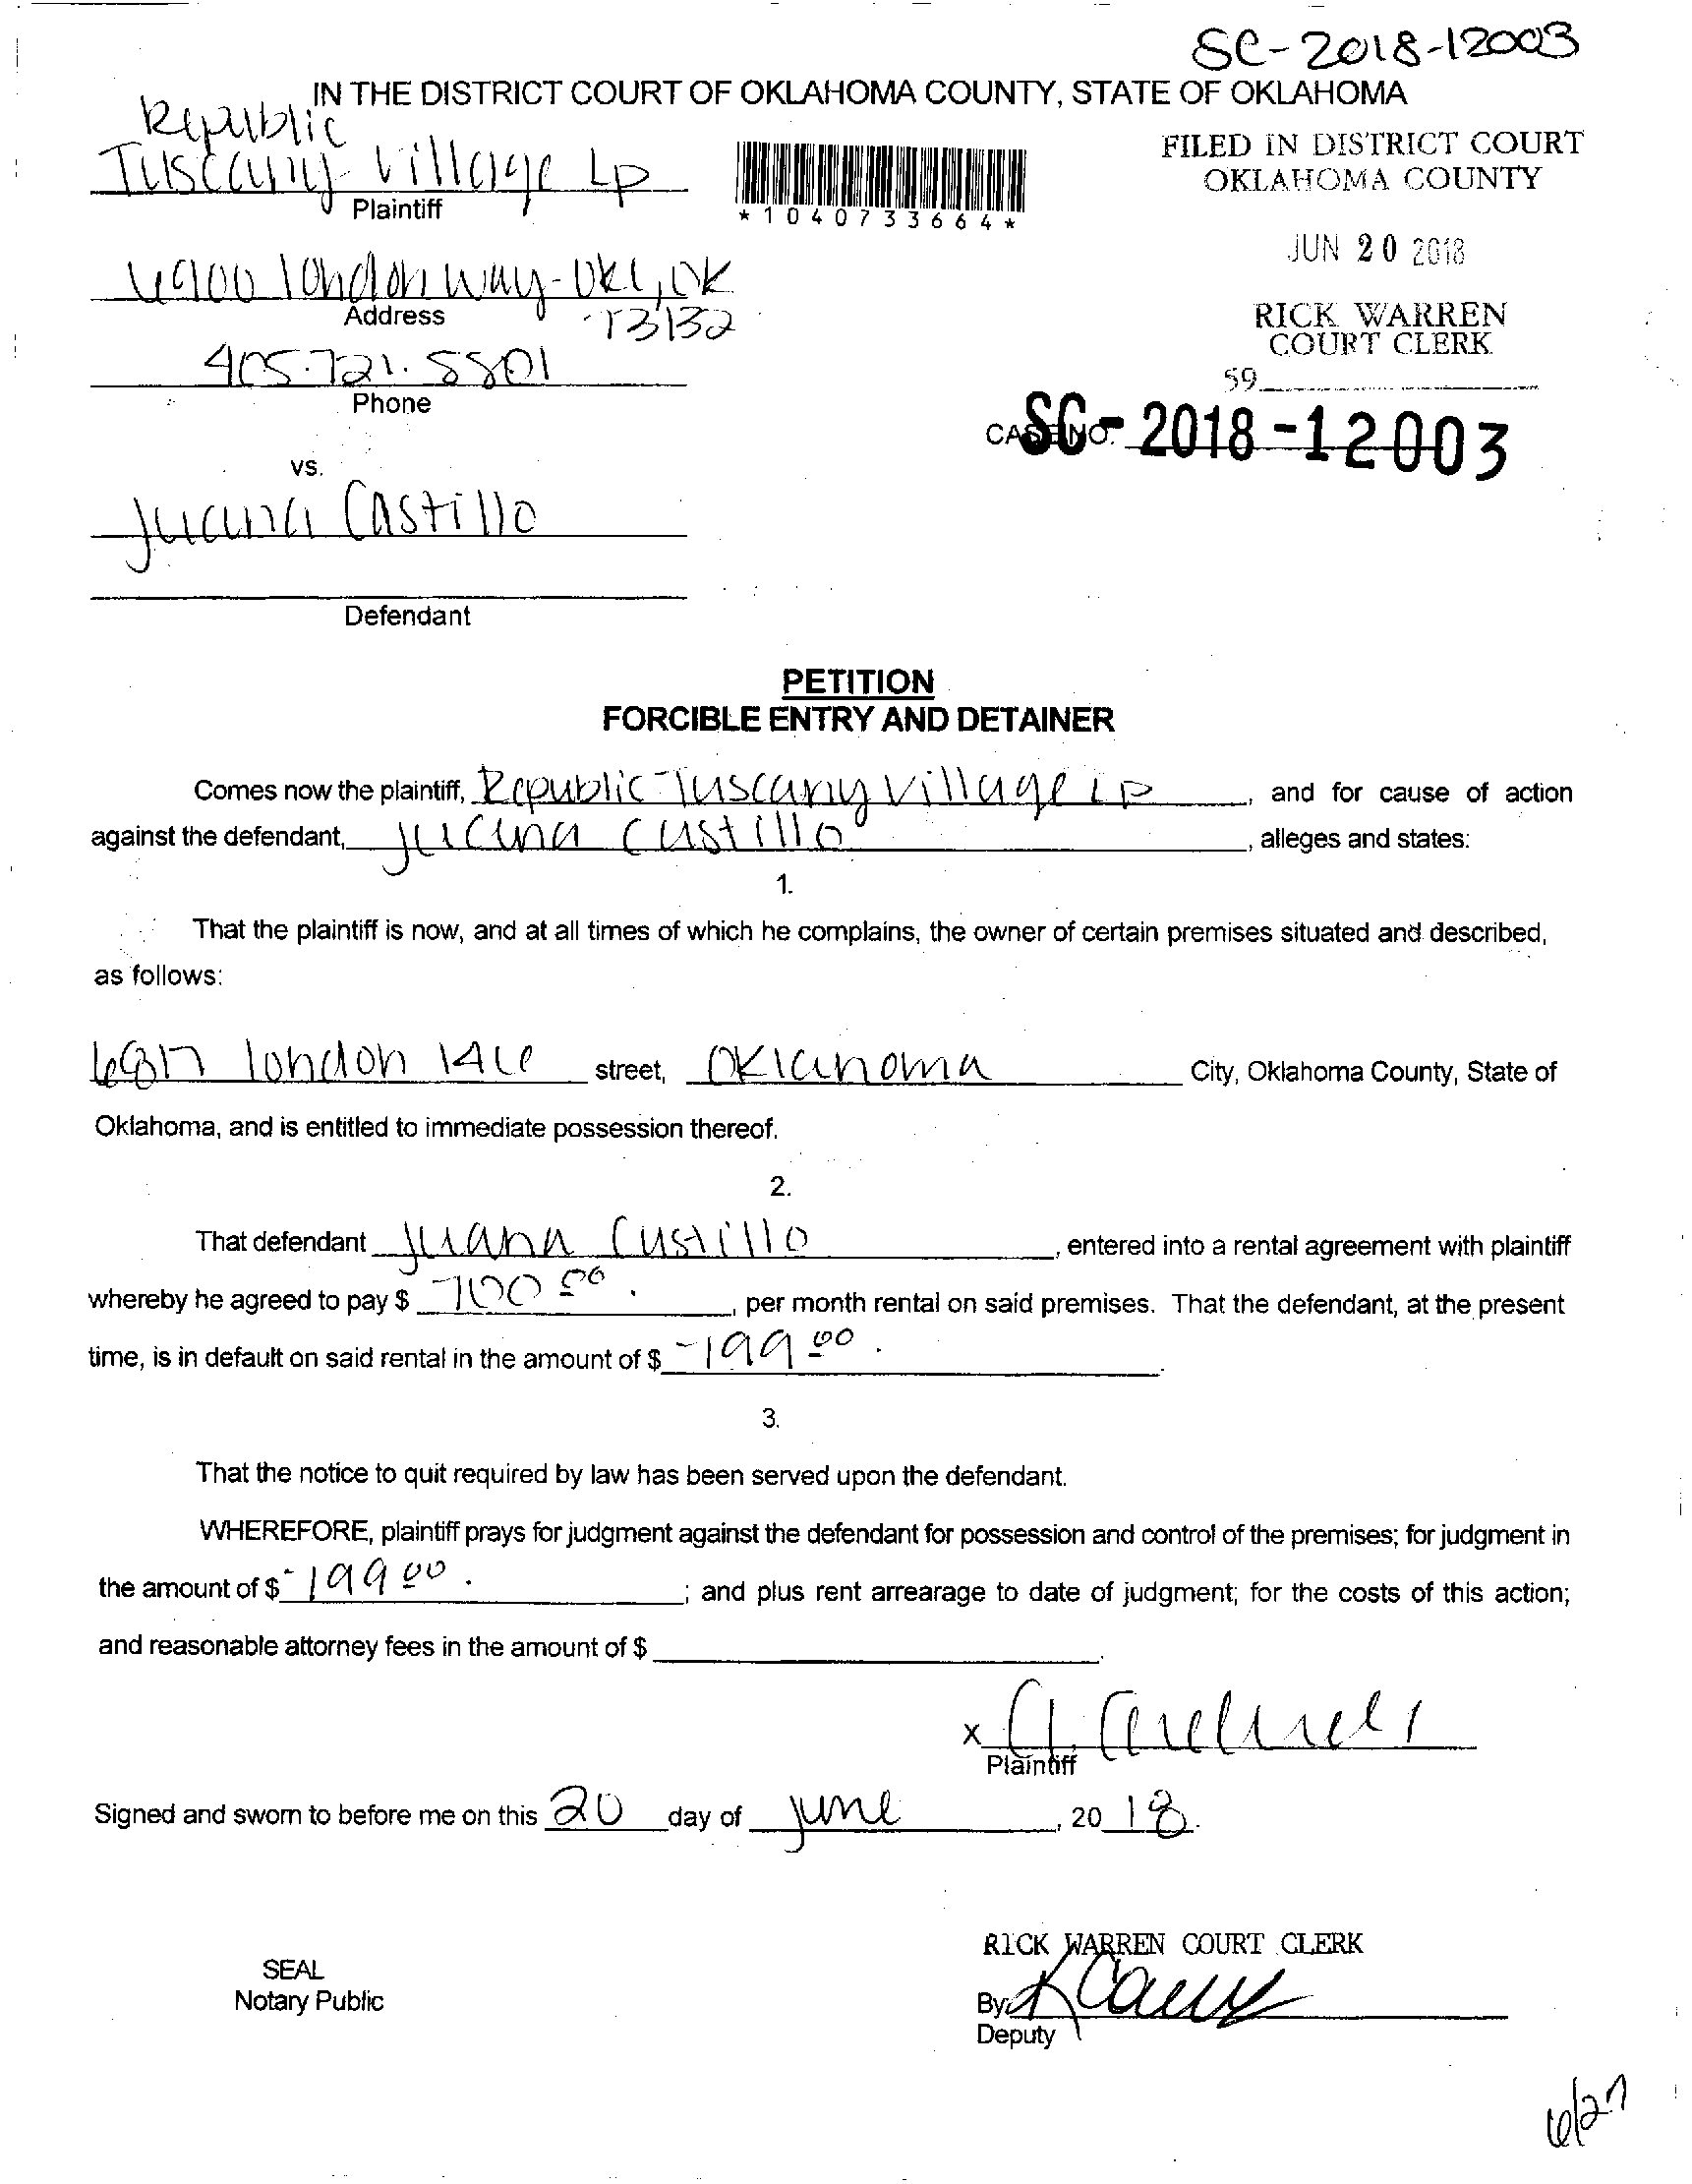 SC-2018-12003
IN THE DISTRICT COURT OF OKLAHOMA COUNTY, STATE OF OKLAHOMA
Republic
Tuscany Village LP
Plaintiff
*1040733664*
FILED IN DISTRICT COURT
OKLAHOMA COUNTY
JUN 20 2018
RICK WARREN
COURT CLERK
59
6900 london way-OKC, OK
73132
Address
405.721.5501
Phone
CASE NO.
SC-2018-12003
vs.
Juana Castillo
Defendant
PETITION
FORCIBLE ENTRY AND DETAINER
Comes now the plaintiff, Republic-Tuscany Village LP, and for cause of action
against the defendant, Juana Castillo, alleges and states:
1.
That the plaintiff is now, and at all times of which he complains, the owner of certain premises situated and described,
as follows:
london street, Oklahoma City, Oklahoma County, State of
Oklahoma, and is entitled to immediate possession thereof.
2.
That defendant Juana Castillo, entered into a rental agreement with plaintiff
whereby he agreed to pay $ 700.00. per month rental on said premises. That the defendant, at the present
time, is in default on said rental in the amount of $ -199 00.
3.
That the notice to quit required by law has been served upon the defendant.
WHEREFORE, plaintiff prays for judgment against the defendant for possession and control of the premises; for judgment in
the amount of $ -199 00. ; and plus rent arrearage to date of judgment; for the costs of this action;
and reasonable attorney fees in the amount of $
x
Plaintiff
Signed and sworn to before me on this 20 day of june, 20 18.
SEAL
Notary Public
RICK WARREN COURT CLERK
By
Deputy
6/27